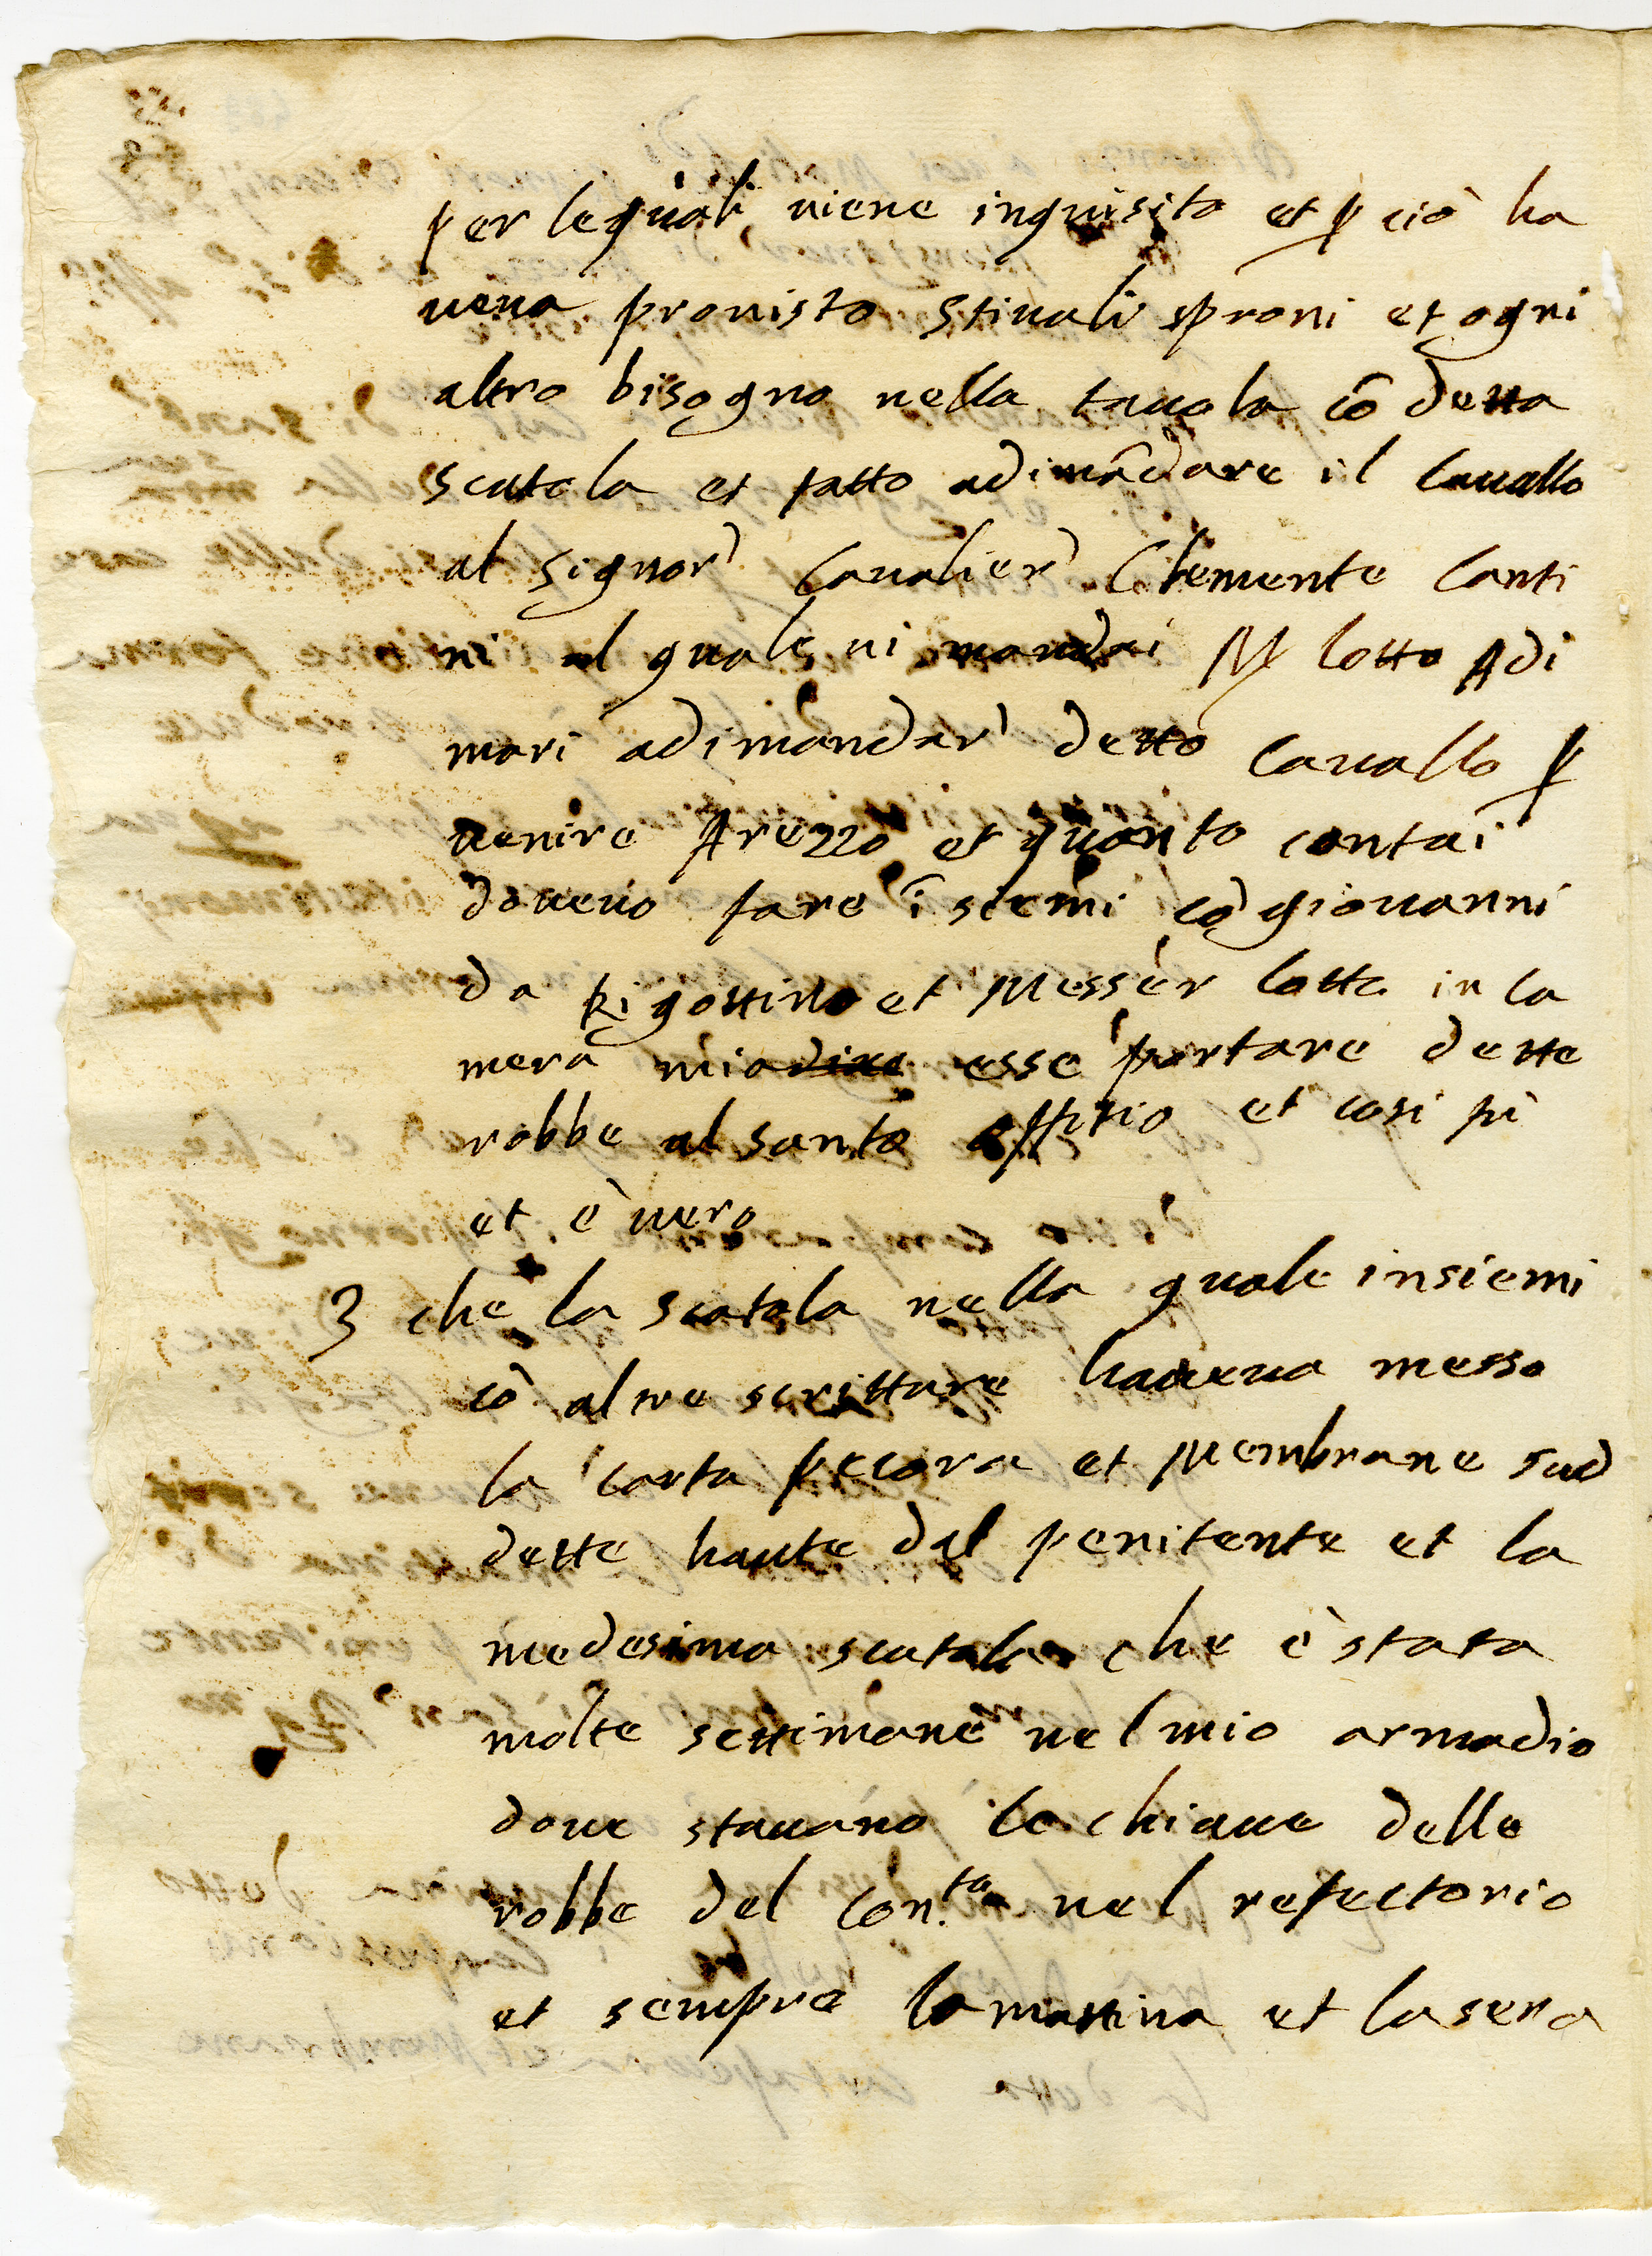 per lequali viene inquisito et p ciò ha
ueua prouisto stiuali sproni et ogni
altro bisogno nella tauola cõ detta
scatola et fatto adimãdare il Cauallo
al signor' Caualier' Clemente Conti
ni al quale ui mandai M lotto Adi
mari adimandar' detto Cauallo p
uenire Arezzo et quanto contai
doueuo fare ĩ siemi cõ giouanni
da Rigottino et Messer lotto in ca
mera mia esse portare dette
robbe al santo offitio et cosi fù
et è uero
3 che la scatola nella quale insiemi
cõ altre scritture haueua messo
la carta pecora et Membrane sud
dette haute dal penitente et la
medesima scatola che è stata
molte settimane nel mio armadio
doue stauano le chiaue delle
robbe del Con.to nel refectorio
et sempre la mattina et la sera